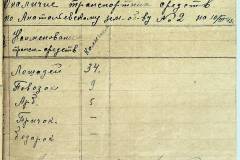 Наличие транспортных средств
по Анатольевскому зем. об-ву № 2 на
Наименован.
трансп-средств
Лошадей 34.
Повозок 9
Арб. 5
Бричок -
Бедарок -